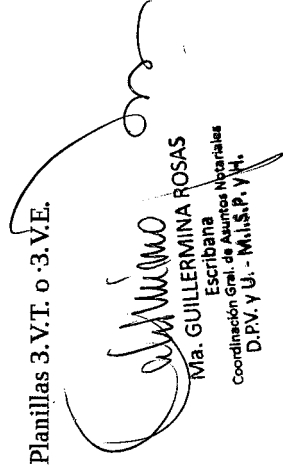 Planillas 3.V.T. o 3.V.E.
Ma. GUILLERMINA ROSAS
Escribana
Coordinación Gral. de Asuntos Notariales
D.P.V. y U. - M.I.S.P. y H.